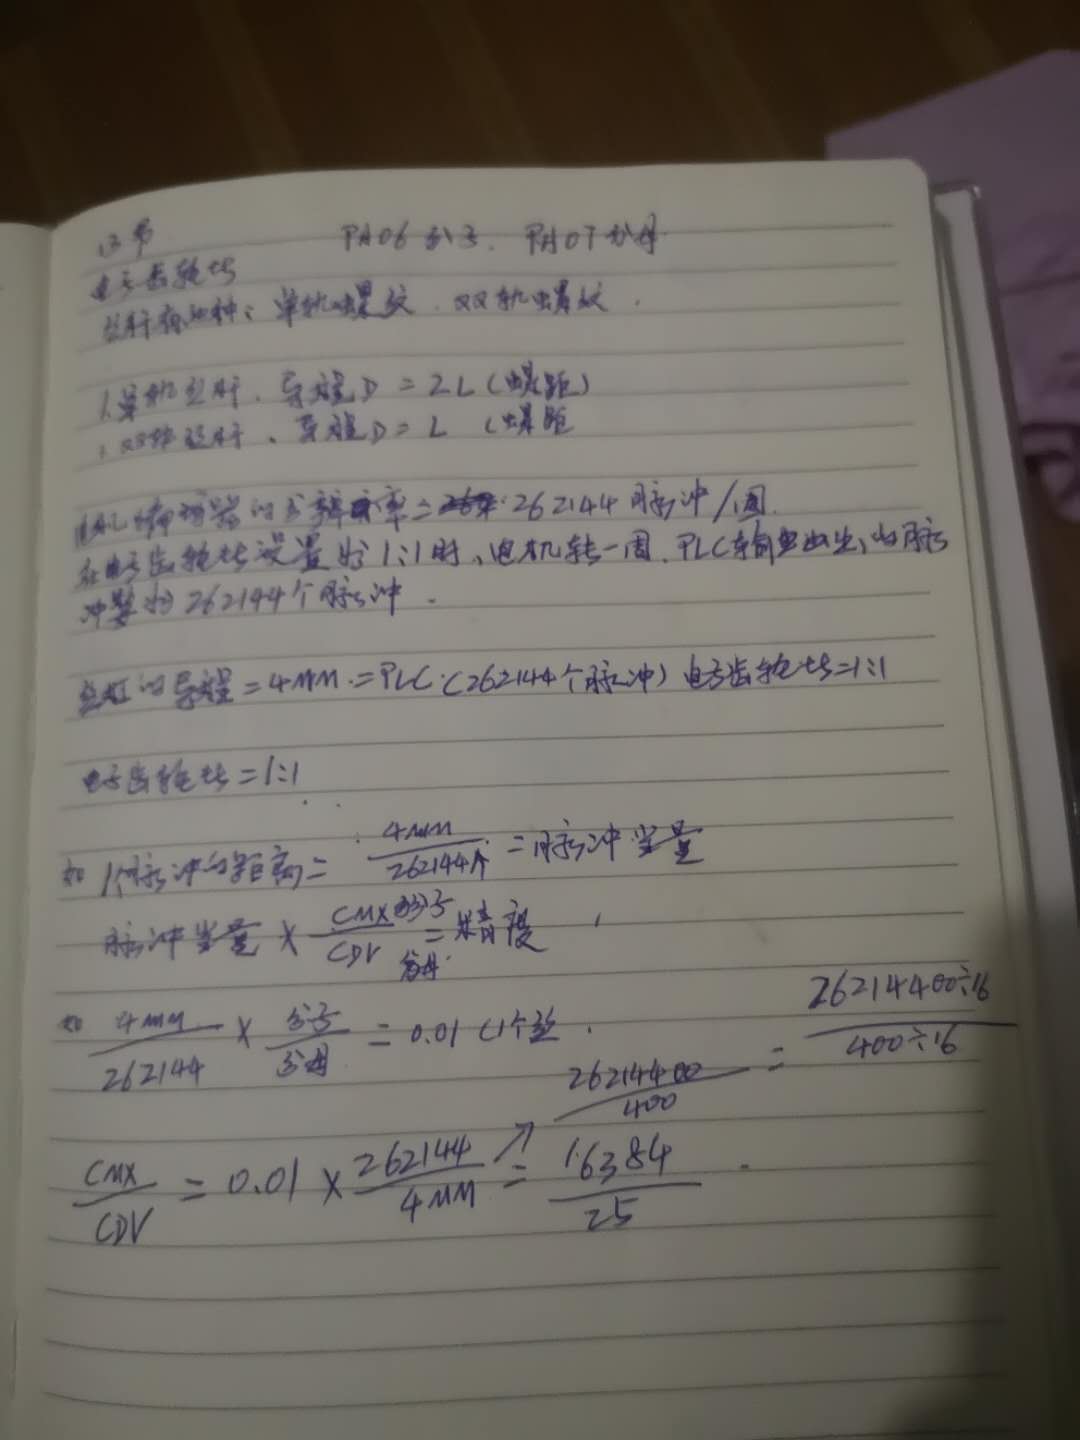 13节 PA06分子. PA07分母
电子齿轮比
丝杆有2种: 单轨螺纹. 双轨螺纹.
1.单轨丝杆. 导程D=2L(螺距)
双轨丝杆. 导程D=L (螺距
编码器的分辨率=262144脉冲/圈.
在电子齿轮比设置为1:1时,电机转一周.PLC输出的脉
冲数为262144个脉冲.
丝杠的导程=4MM.=PLC.(262144个脉冲) 电子齿轮比=1:1
电子齿轮比=1:1
如 1个脉冲的距离= 4MM / 262144个 =脉冲当量
脉冲当量 × CMX分子 / CDV 分母 = 精度
如 4MM / 262144 × 分子 / 分母 = 0.01 (1个丝.
26214400 / 400 = 26214400÷16 / 400÷16
CMX / CDV = 0.01 × 262144 / 4MM = 16384 / 25